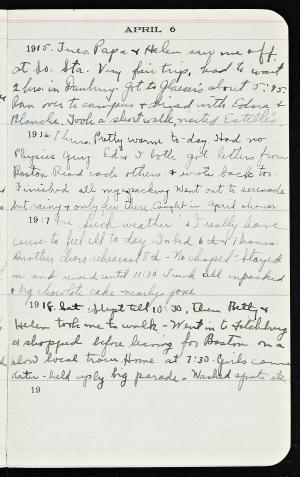 APRIL 6
1915. Tues. Papa & Helen saw me off
at So. Sta. Very fair trip, had to wait
2 hrs. in Danbury. Got to about 5:45.
Ran over to campus & dined with Edna &
Blanche. Took a short walk, visited Estelle's
1916 Thurs. Pretty warm to-day. Had no
Physics Quiz. Ed & I both got letters from
Boston. Read each others. & wrote back to.
Finished all my packing. Went out to serenade
but rainy & only few there. Caught in April shower
1917 Fri. Such weather & I really have
cause to feel ill to-day. In bed 6th & 7 hours.
Another chorus rehearsal 8th - No chapel - Stayed
in and sewed until 11:30. Trunk all unpacked
& big chocolate cake nearly gone
1918. Sat. Slept till 10:30, Then Betty &
Helen took me to walk - Went in to Fitchburg
& shopped before leaving for Boston on a
slow local train. Home at 7:30. Girls came
later - held up by big parade. - Washed spats etc.
19